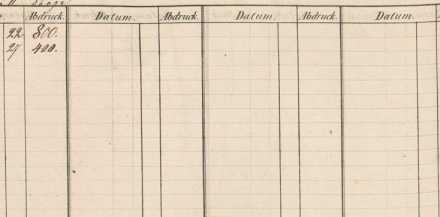 Abdruck. Datum. Abdruck. Datum. Abdruck. Datum.
22 800.
27 400.